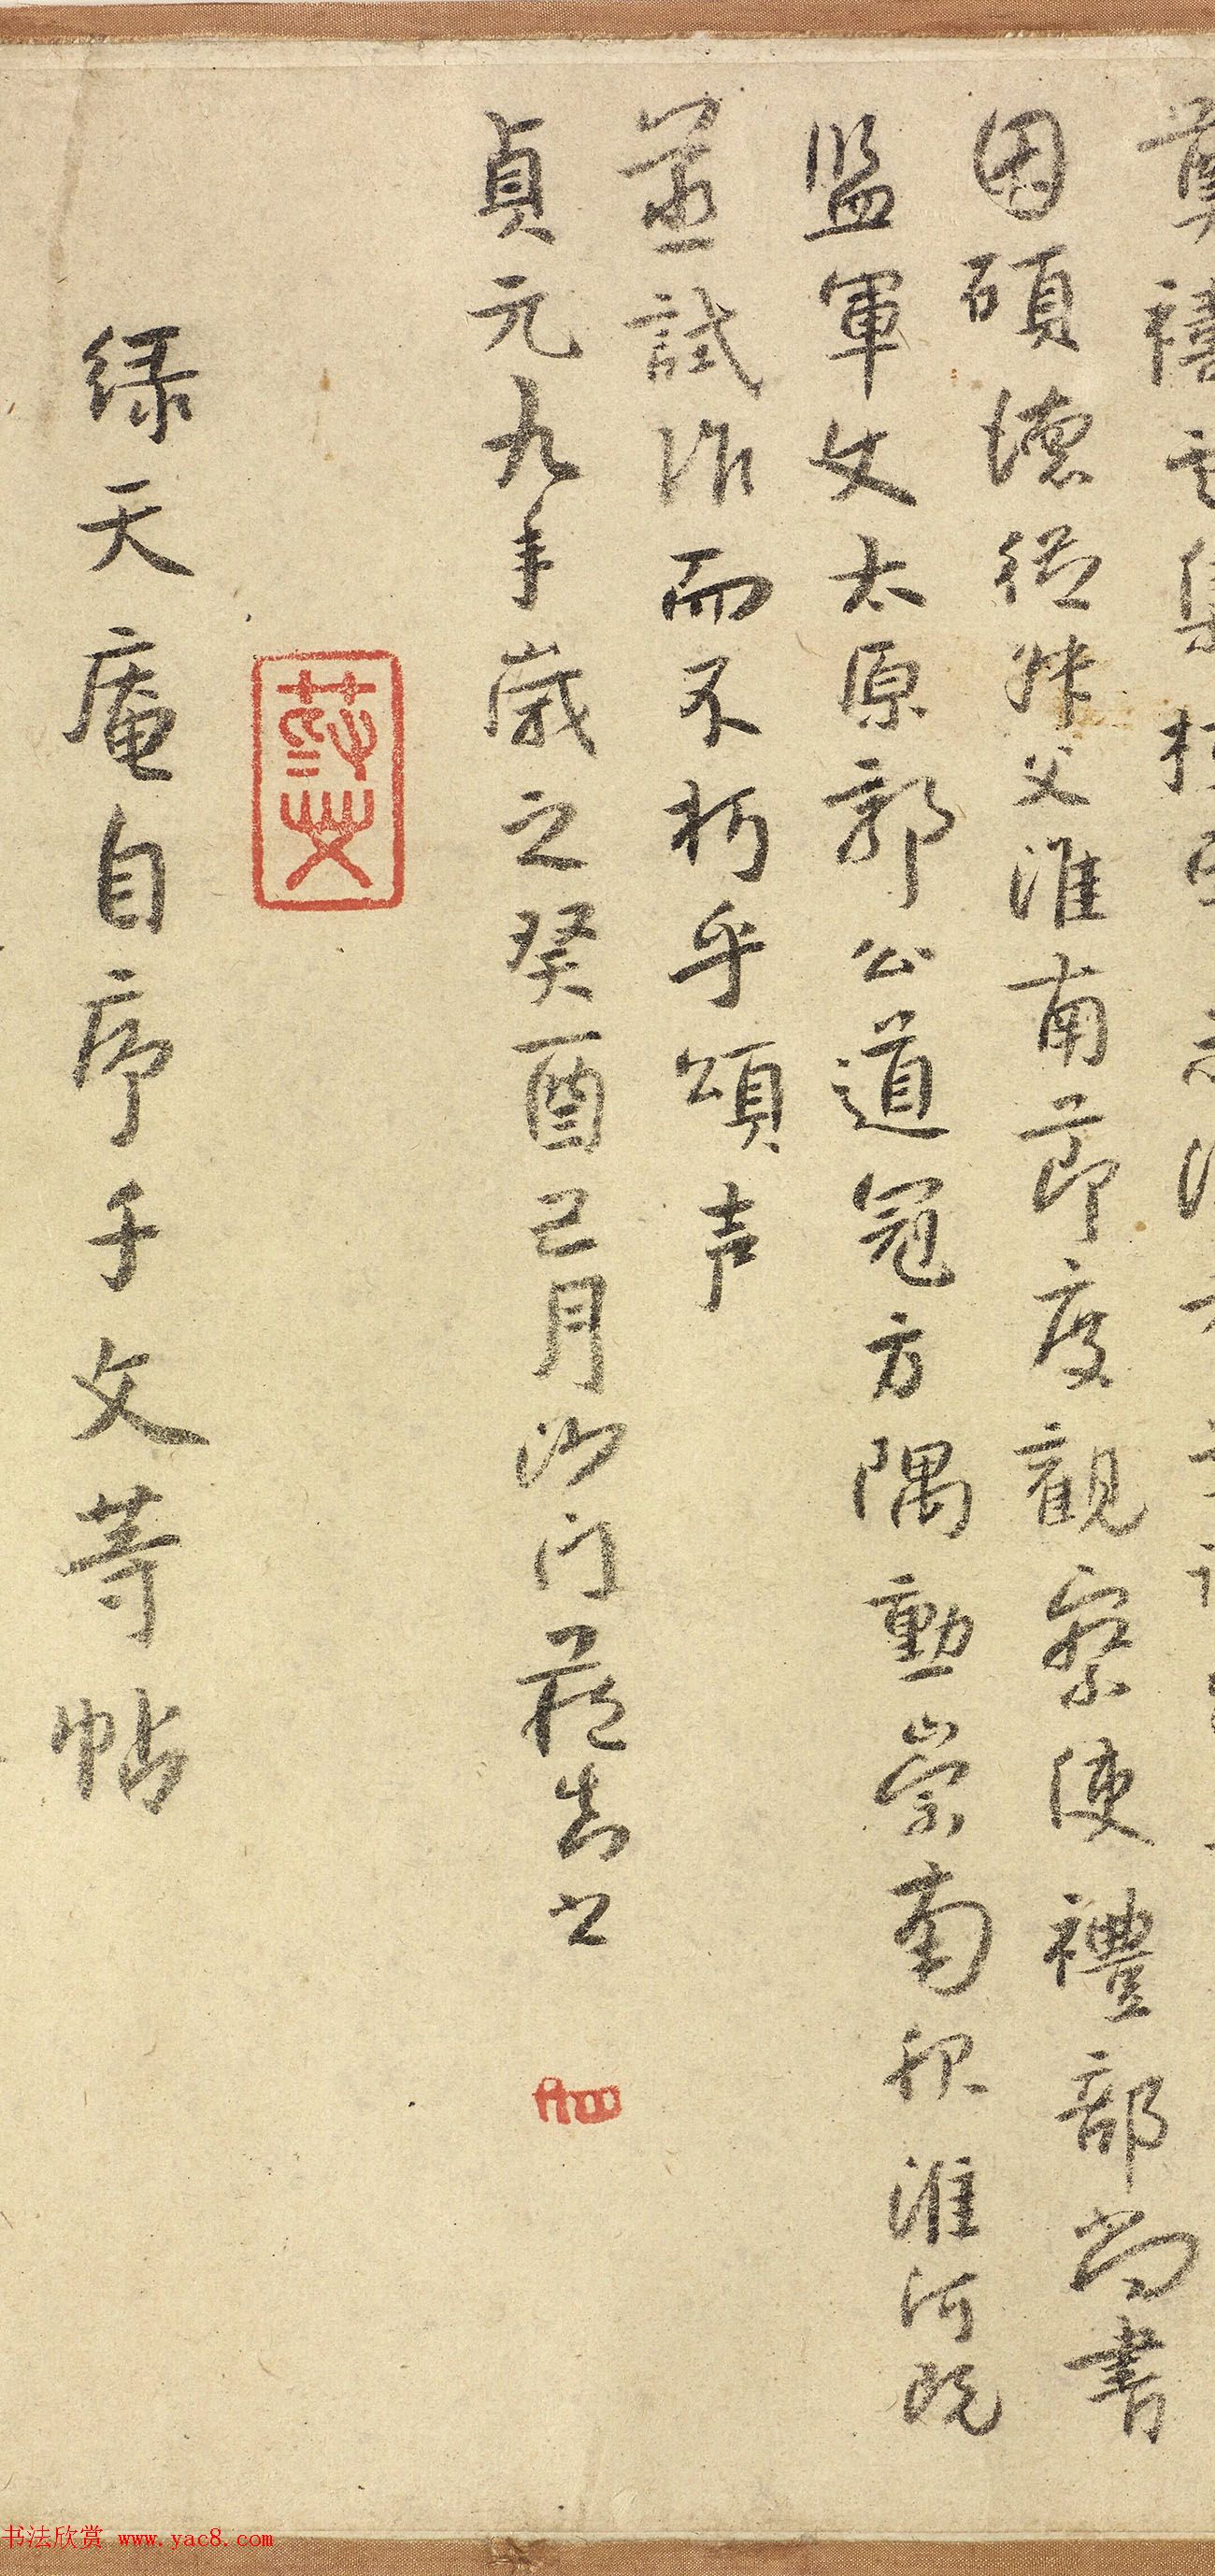 集
因碩德從叔父淮南節度觀察使禮部尚書
監軍丈太原郭公道冠方隅勳崇南服淮河既
蒸試作而不朽乎頌声
貞元九年歲之癸酉己月沙门藏真书
绿天庵自序千文等帖
书法欣赏 www.yac8.com